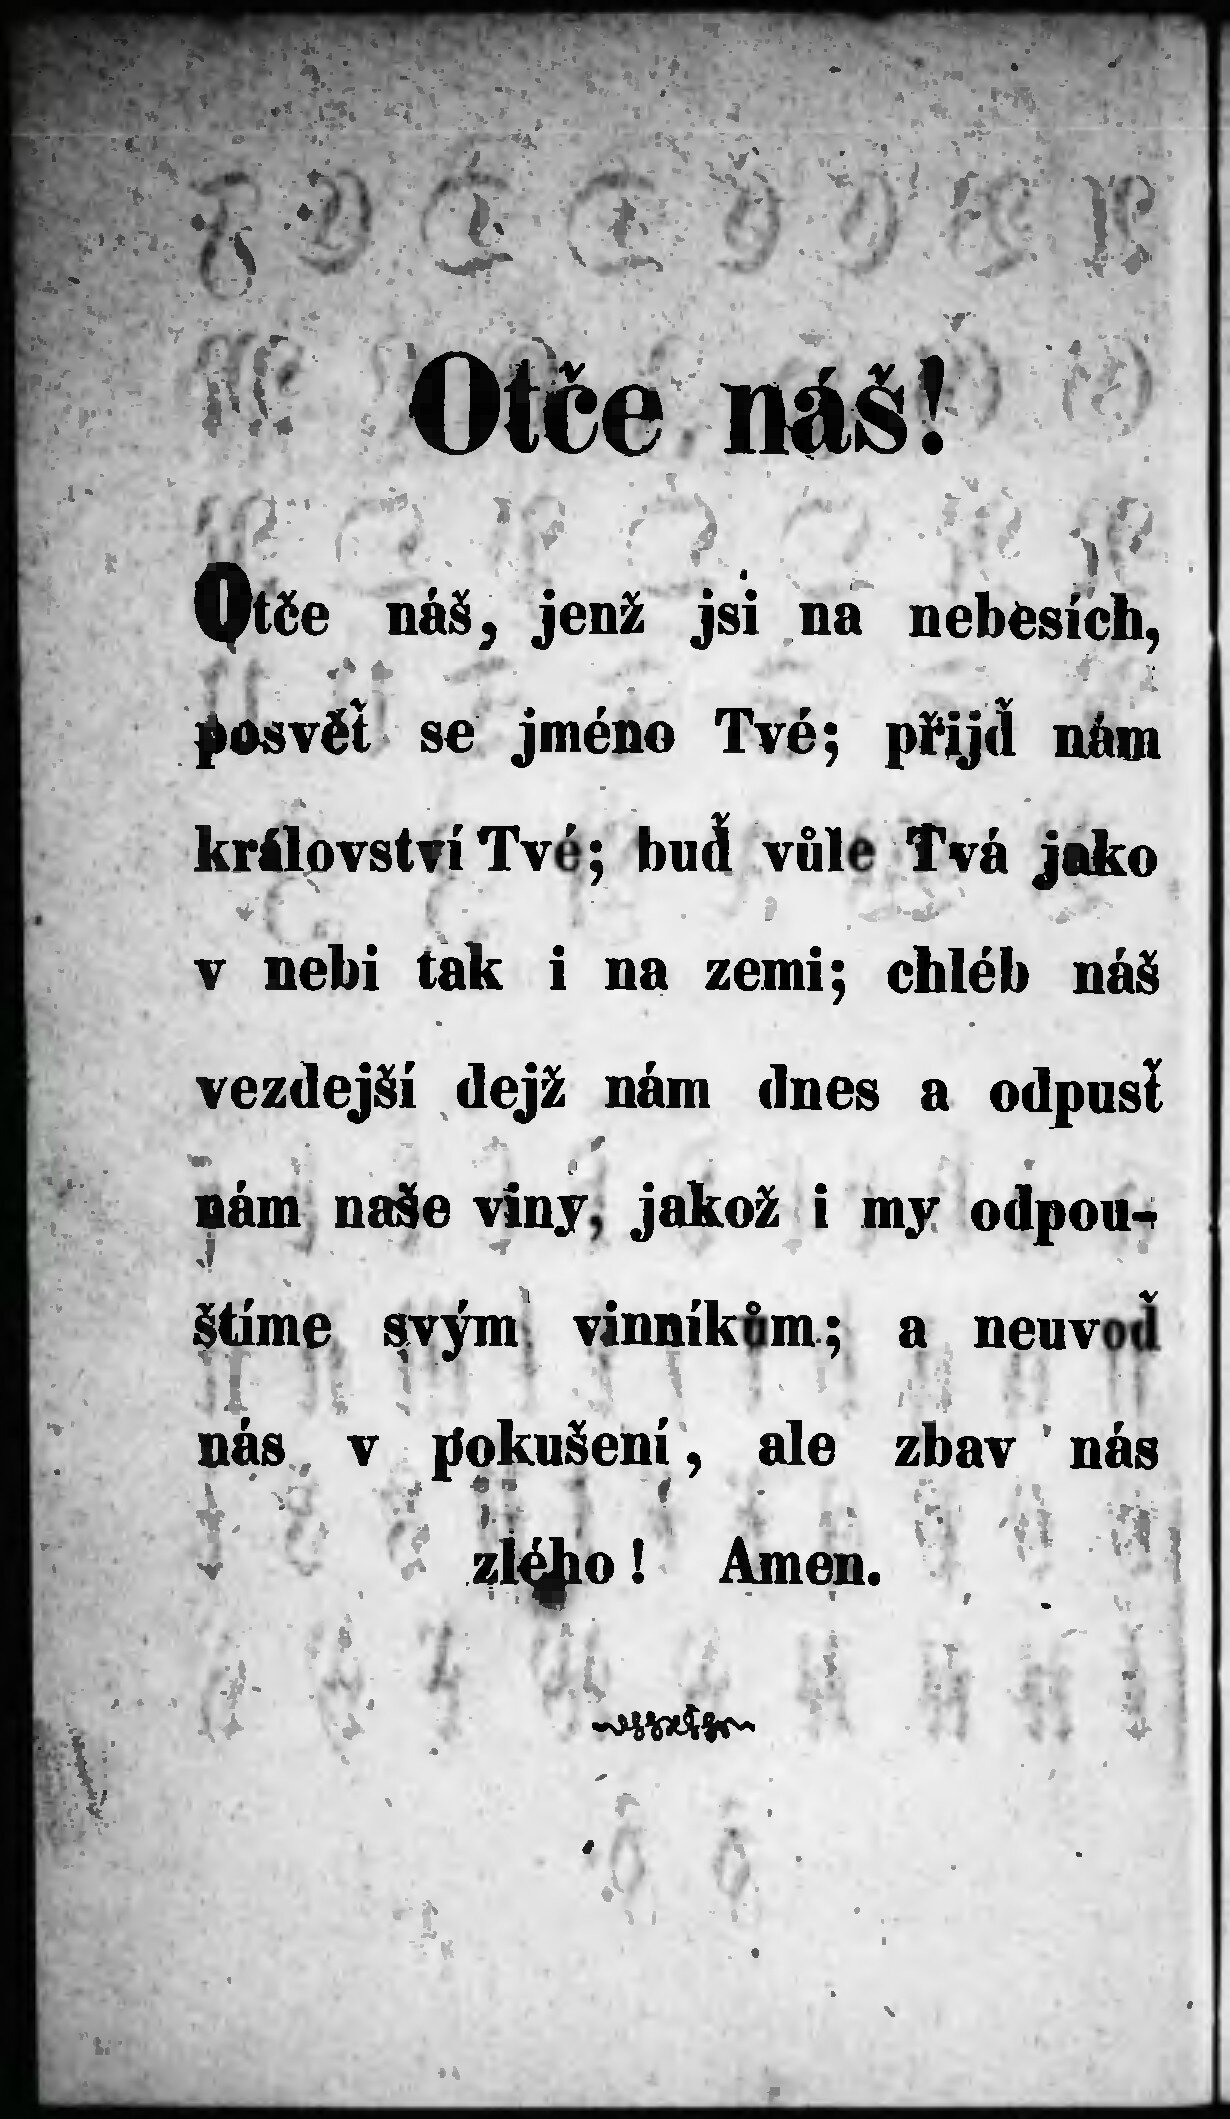 Otče náš!
Otče náš, jenž jsi na nebesích,
posvěť se jméno Tvé; přijď nám
království Tvé; buď vůle Tvá jako
v nebi tak i na zemi; chléb náš
vezdejší dejž nám dnes a odpusť
nám naše viny, jakož i my odpou-
štíme svým vinníkům; a neuvoď
nás v pokušení, ale zbav nás
zlého! Amen.